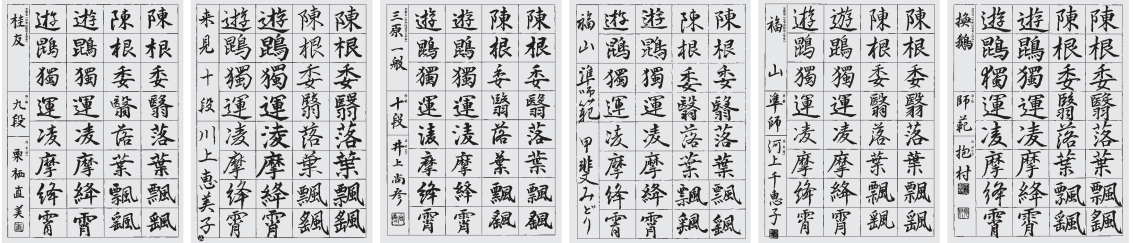 陳根委翳落葉飄颻
陳根委翳落葉飄颻
遊鵾獨運凌摩絳霄
遊鵾獨運凌摩絳霄
換鵝 師範 抱村
陳根委翳落葉飄颻
陳根委翳落葉飄颻
遊鵾獨運凌摩絳霄
遊鵾獨運凌摩絳霄
福山 準師 河上千恵子
陳根委翳落葉飄颻
陳根委翳落葉飄颻
遊鵾獨運凌摩絳霄
遊鵾獨運凌摩絳霄
福山 準師範 甲斐みどり
陳根委翳落葉飄颻
陳根委翳落葉飄颻
遊鵾獨運凌摩絳霄
遊鵾獨運凌摩絳霄
三原一般 十段 井上尚彦
陳根委翳落葉飄颻
陳根委翳落葉飄颻
遊鵾獨運凌摩絳霄
遊鵾獨運凌摩絳霄
来見 十段 川上恵美子
陳根委翳落葉飄颻
陳根委翳落葉飄颻
遊鵾獨運凌摩絳霄
遊鵾獨運凌摩絳霄
桂友 九段 栗栖直美